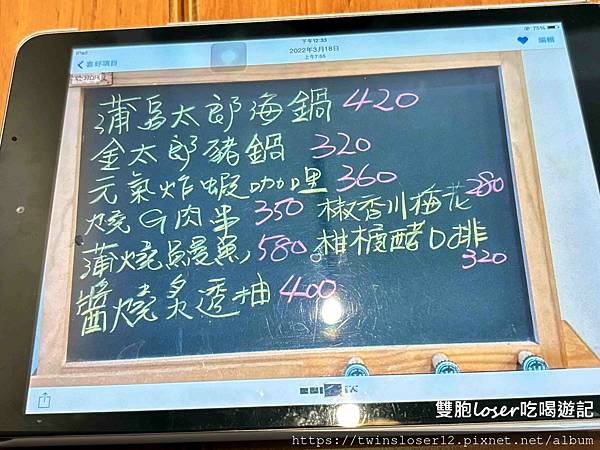 iPad
下午12:33
75%
喜好項目
2022年3月18日
上午7:55
編輯
蒲島太郎海鍋 420
金太郎豬鍋 320
元氣炸蝦咖哩 360
燒G肉串 350
椒香川梅花 280
蒲燒鰻魚 580
柑橘醋D排 320
醬燒炙透抽 400
雙胞loser吃喝遊記
https://twinsloser12.pixnet.net/album